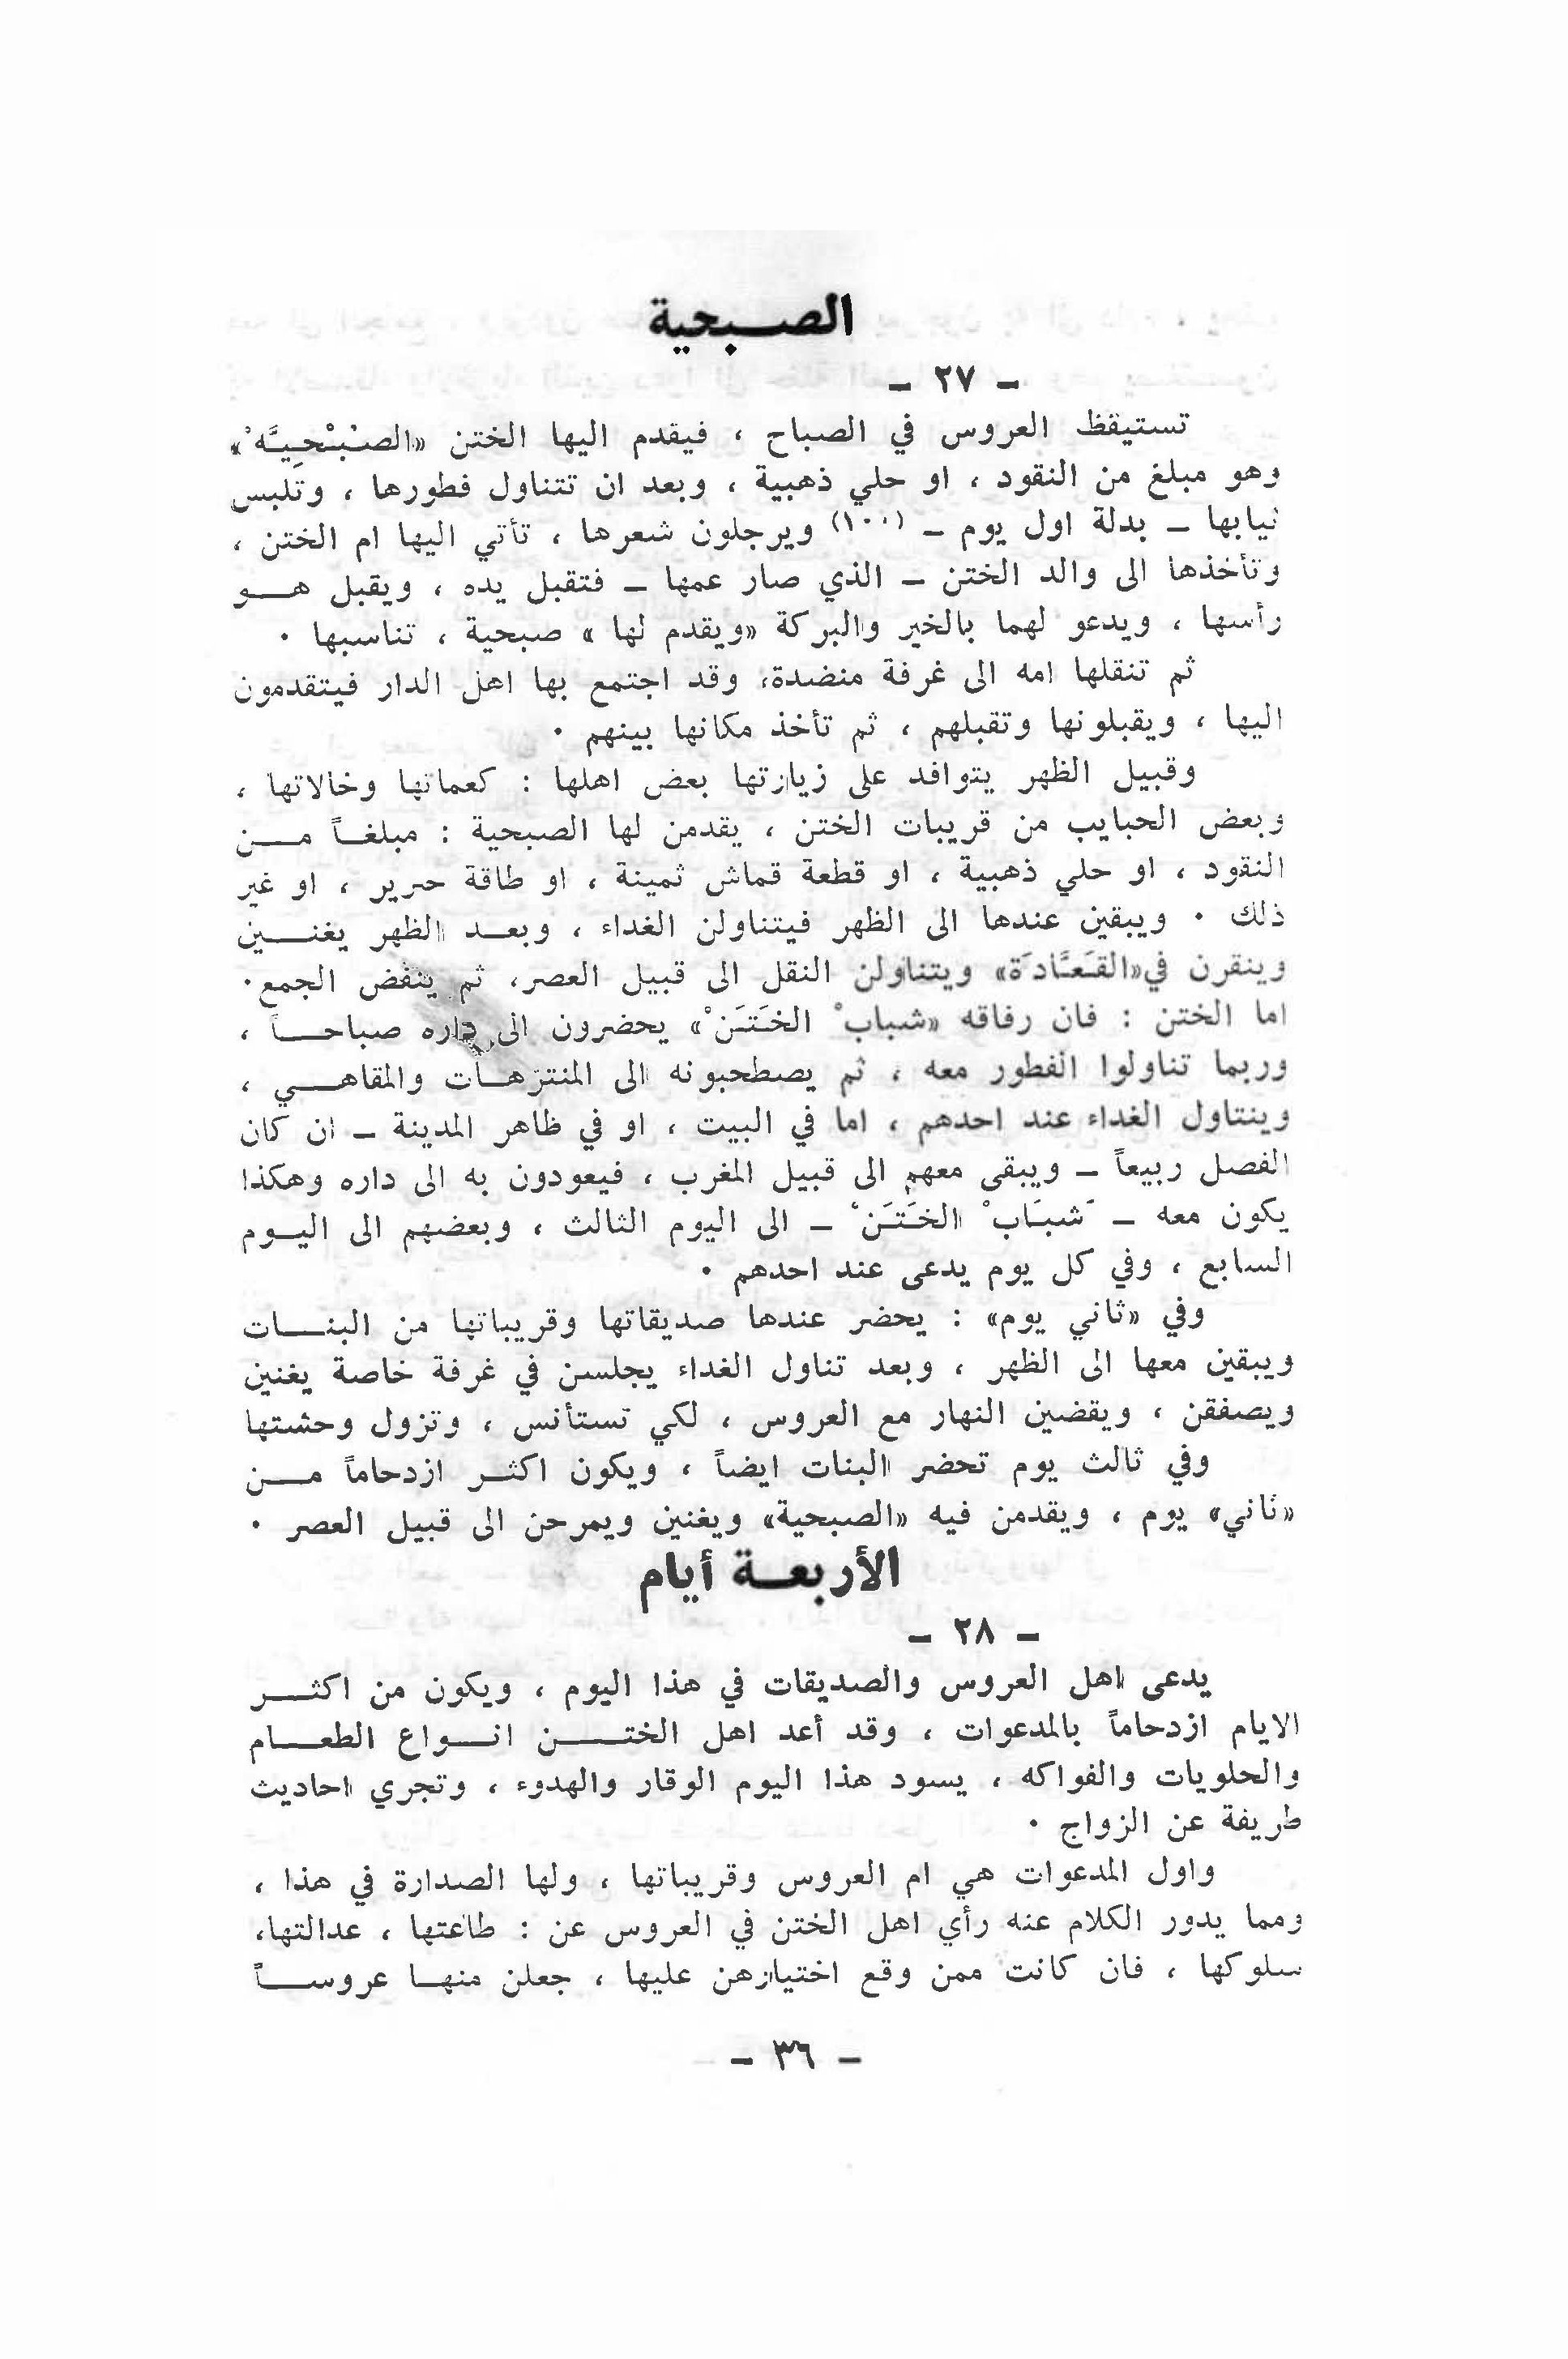 الصبحية
- ٢٧ -
تستيقظ العروس في الصباح ، فيقدم اليها الختن «الصُبْحِيَّه ْ»
وهو مبلغ من النقود ، او حلي ذهبية ، وبعد ان تتناول فطورها ، وتلبس
ثيابها - بدلة اول يوم - (١٠٠) ويرجلون شعرها ، تأتي اليها ام الختن ،
وتأخذها الى والد الختن - الذي صار عمها - فتقبل يده ، ويقبل هو
رأسها ، ويدعو لهما بالخير والبركة «ويقدم لها » صبحية ، تناسبها .
ثم تنقلها امه الى غرفة منضدة، وقد اجتمع بها اهل الدار فيتقدمون
اليها ، ويقبلونها وتقبلهم ، ثم تأخذ مكانها بينهم .
وقبيل الظهر يتوافد على زيارتها بعض اهلها : كعماتها وخالاتها ،
وبعض الحبايب من قريبات الختن ، يقدمن لها الصبحية : مبلغاً من
النقود ، او حلي ذهبية ، او قطعة قماش ثمينة ، او طاقة حرير ، او غير
ذلك . ويبقين عندها الى الظهر فيتناولن الغداء ، وبعد الظهر يغنين
وينقرن في«القَعَّادَة» ويتناولن النقل الى قبيل العصر، ثم ينفض الجمع.
اما الختن : فان رفاقه «شباب ْ الخَتَن ْ» يحضرون الى داره صباحاً ،
وربما تناولوا الفطور معه ، ثم يصطحبونه الى المنتزهات والمقاهي ،
وينتاول الغداء عند احدهم ، اما في البيت ، او في ظاهر المدينة - ان كان
الفصل ربيعاً - ويبقى معهم الى قبيل المغرب ، فيعودون به الى داره وهكذا
يكون معه - شَبَاب ْ الخَتَن ْ - الى اليوم الثالث ، وبعضهم الى اليوم
السابع ، وفي كل يوم يدعى عند احدهم .
وفي «ثاني يوم» : يحضر عندها صديقاتها وقريباتها من البنات
ويبقين معها الى الظهر ، وبعد تناول الغداء يجلسن في غرفة خاصة يغنين
ويصفقن ، ويقضين النهار مع العروس ، لكي تستأنس ، وتزول وحشتها
وفي ثالث يوم تحضر البنات ايضاً ، ويكون اكثر ازدحاماً من
«ثاني» يوم ، ويقدمن فيه «الصبحية» ويغنين ويمرحن الى قبيل العصر .
الأربعة أيام
- ٢٨ -
يدعى اهل العروس والصديقات في هذا اليوم ، ويكون من اكثر
الايام ازدحاماً بالمدعوات ، وقد أعد اهل الختن انواع الطعام
والحلويات والفواكه ، يسود هذا اليوم الوقار والهدوء ، وتجري احاديث
طريفة عن الزواج .
واول المدعوات هي ام العروس وقريباتها ، ولها الصدارة في هذا ،
ومما يدور الكلام عنه رأي اهل الختن في العروس عن : طاعتها ، عدالتها،
سلوكها ، فان كانت ممن وقع اختيارهن عليها ، جعلن منها عروساً
- ٣٦ -